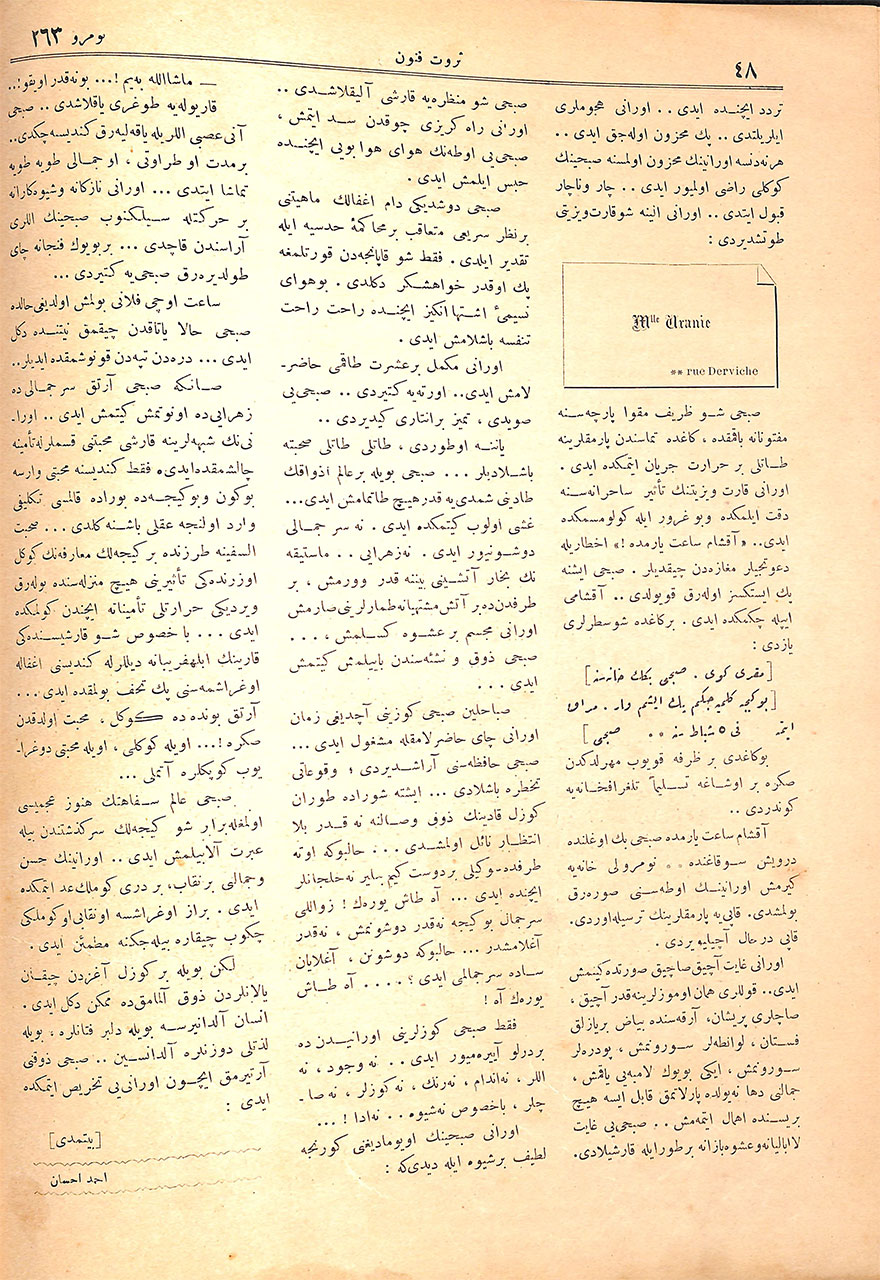 ٤٨
ثروت فنون
نومرو ٢٦٣
تردد ایچنده ایدی . . اورانی هجوملری
ایلریلتدی . . پك محزون اوله جق ایدی . .
هرنه دنسه اورانینك محزون اولمسنه صبحینك
كوكلی راضی اولمیور ایدی . . چار وناچار
قبول ایتدی . . اورانی الینه شوقارت ویزیتی
طوتشدیردی :
Mlle Uranie
** rue Derviche
صبحی شو ظریف مقوا پارچه سنه
مفتونانه باققده ، كاغده تماسندن پارمقلرینه
طاتلی بر حرارت جریان ایتمكده ایدی .
اورانی قارت ویزیتنك تأثیر ساحرانه سنه
دقت ایلمكده وبو غرور ایله كولومسمكده
ایدی.. «آقشام ساعت یارمده !» اخطاریله
دعوتجیلر مغازه دن چیقدیلر . صبحی ایشنه
پك ایستكسز اوله رق قویولدی .. آقشامی
ایپله چكمكده ایدی . بركاغده شوسطرلری
یازدی :
[مقری كوی . صبحی بكك خانه سنه]
[بو كیجه كلمیه جكم پك ایشم وار . مراق
ایتمه فی ٥ شباط سنه ** صبحی]
بوكاغدی بر ظرفه قویوب مهرلدكدن
صكره بر اوشاغه تسلیماً تلغرافخانه یه
كوندردی ..
آقشام ساعت یارمده صبحی بك اوغلنده
درویش سوقاغنده ** نومرولی خانه یه
كیرمش اورانینك اوطه سنی صوره رق
بولمشدی. قاپی یه پارمقلرینك ترسیله اوردی.
قاپی درحال آچیلیویردی .
اورانی غایت آچیق صاچیق صورتده كینمش
ایدی.. قوللری همان اوموزلرینه قدر آچیق ،
صاچلری پریشان، آرقه سنده بیاض بریازلق
فستان ، لوانطه لر سورونمش ، پودره لر
سورونمش ، ایكی بویوك لامبه یی یاقمش ،
جمالی دها نه یولده پارلاتمق قابل ایسه هیچ
بریسنده اهمال ایتمه مش . . صبحی یی غایت
لاابالیانه وعشوه بازانه برطور ایله قارشیلادی.
صبحی شو منظره یه قارشی آلیقلاشدی ..
اورانی راه كریزی چوقدن سد ایتمش ،
صبحی یی اوطه نك هوای هوا بویی ایچنده
حبس ایلمش ایدی .
صبحی دوشدیكی دام اغفالك ماهیتنی
برنظر سریعی متعاقب برمحاكمهٔ حدسیه ایله
تقدیر ایلدی . فقط شو قاپانجه دن قورتلمغه
پك اوقدر خواهشكر دكلدی . بوهوای
نسیمیٔ اشتها انكیز ایچنده راحت راحت
تنفسه باشلامش ایدی .
اورانی مكمل برعشرت طاقمی حاضر-
لامش ایدی.. اورته یه كتیردی .. صبحی یی
صویدی ، تمیز برانتاری كیدیردی ..
یاننه اوطوردی ، طاتلی طاتلی صحبته
باشلادیلر ... صبحی بویله برعالم اذواقك
طادینی شمدی یه قدر هیچ طاتمامش ایدی...
غشی اولوب كیتمكده ایدی . نه سر جمالی
دوشونیور ایدی . نه زهرایی .. ماستیقه
نك بخار آتشینی بیننه قدر وورمش ، بر
طرفدن ده بر آتش مشتهیانه طمارلرینی صارمش
اورانی مجسم بر عشوه كسلمش ، . . .
صبحی ذوق و نشئه سندن بایبلمش كیتمش
ایدی ...
صباحلین صبحی كوزینی آچدیغی زمان
اورانی چای حاضرلامقله مشغول ایدی ...
صبحی حافظه سنی آراشدیردی ؛ وقوعاتی
تخطره باشلادی ... ایشته شوراده طوران
كوزل قادینك ذوق وصالنه نه قدر بلا
انتظار نائل اولمشدی . . . حالبوكه اوته
طرفده - وكیلی بردوست كیم بیلیر نه خلجانلر
ایچنده ایدی ... آه طاش یورهك ! زواللی
سرجمال بو كیجه نه قدر دوشونمش ، نه قدر
آغلامشدر ... حالبوكه دوشونن ، آغلایان
ساده سرجمالمی ایدی ؟ . . . . آه طاش
یورهك آه !
فقط صبحی كوزلرینی اورانیدن ده
بردرلو آییره میور ایدی . . نه وجود ، نه
اللر ، نه اندام ، نه رنك ، نه كوزلر ، نه صا-
چلر ، باخصوص نه شیوه . . نه ادا ! ...
اورانی صبحینك اویومادیغنی كورنجه
لطیف برشیوه ایله دیدی كه :
— ماشاالله به یم !... بونه قدر اویقو!..
قاریوله یه طوغری یاقلاشدی .. صبحی
آنی عصبی اللریله یاقه لیه رق كندیسنه چكدی..
برمدت او طراوتی ، او جمالی طویه طویه
تماشا ایتدی ... اورانی نازكانه وشیوه كارانه
بر حركتله سیلكنوب صبحینك اللری
آراسندن قاچدی ... بربویوك فنجانه چای
طولدیره رق صبحی یه كتیردی ...
ساعت اوچی فلانی بولمش اولدیغی حالده
صبحی حالا یاتاقدن چیقمق نیتنده دكل
ایدی ... دره دن تپه دن قونوشمقده ایدیلر..
صانكه صبحی آرتق سر جمالی ده
زهرایی ده اونوتمش كیتمش ایدی .. اورا-
نی نك شبهه لرینه قارشی محبتنی قسملرله تأمینه
چالشمقده ایدی، فقط كندیسنه محبتی وارسه
بوكون وبوكیجه ده بوراده قالمسی تكلیفی
وارد اولنجه عقلی باشنه كلدی ... صحبت
السفینه طرزنده بر كیجه لك معارفه نك كوكل
اوزرنده كی تأثیرینی هیچ منزله سنده بوله رق
ویردیكی حرارتلی تأمیناته ایچندن كولمكده
ایدی ... با خصوص شو قارشیسنده كی
قارینك ابلهفریبانه دیللرله كندیسنی اغفاله
اوغراشمه سنی پك تحف بولمقده ایدی ...
آرتق بونده ده كوكل ، محبت اولدقدن
صكره !... اویله كوكلی ، اویله محبتی دوغرا-
یوب كوپكلره آتملی ...
صبحی عالم سفاهتك هنوز عجمیسی
اولمغله برابر شو كیجه لك سركذشتندن بیله
عبرت آلابیلمش ایدی .. اورانینك حسن
وجمالی برنقاب، بر دری كوملك عد ایتمكده
ایدی . براز اوغراشسه اونقابی اوكوملكی
چكوب چیقاره بیله جكنه مطمئن ایدی .
لكن بویله بر كوزل آغزدن چیقان
یالانلردن ذوق آلمامق ده ممكن دكل ایدی .
انسان آلدانیرسه بویله دلبر فتانلره ، بویله
لذتلی دوزنلره آلدانسین .. صبحی ذوقنی
آرتیرمق ایچون اورانی یی تحریص ایتمكده
ایدی :
[بیتمدی]
احمد احسان